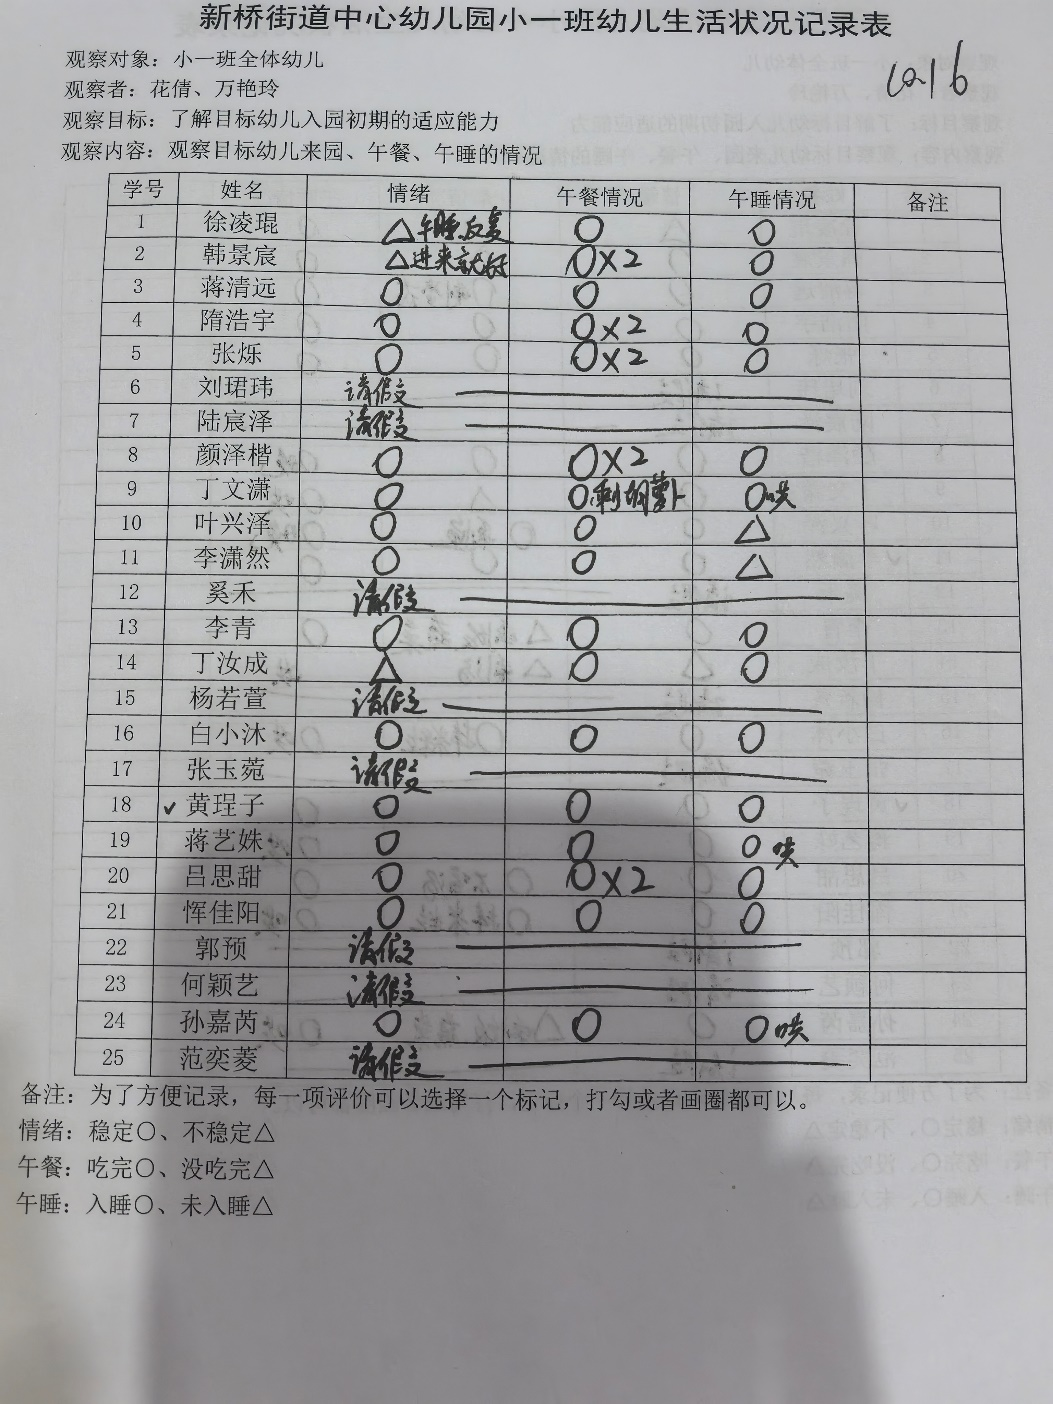 新桥街道中心幼儿园小一班幼儿生活状况记录表
观察对象：小一班全体幼儿
10.16
观察者：花倩、万艳玲
观察目标：了解目标幼儿入园初期的适应能力
观察内容：观察目标幼儿来园、午餐、午睡的情况
学号 姓名 情绪 午餐情况 午睡情况 备注
1 徐凌琨 △午睡反复 ○ ○
2 韩景宸 △进来就好 ○×2 ○
3 蒋清远 ○ ○ ○
4 隋浩宇 ○ ○×2 ○
5 张烁 ○ ○×2 ○
6 刘珺玮 请假
7 陆宸泽 请假
8 颜泽楷 ○ ○×2 ○
9 丁文潇 ○ ○剩胡萝卜 ○哄
10 叶兴泽 ○ ○ △
11 李潇然 ○ ○ △
12 奚禾 请假
13 李青 ○ ○ ○
14 丁汝成 △ ○ ○
15 杨若萱 请假
16 白小沐 ○ ○ ○
17 张玉菀 请假
18 ✓ 黄珵子 ○ ○ ○
19 蒋艺姝 ○ ○ ○ 哄
20 吕思甜 ○ ○×2 ○
21 恽佳阳 ○ ○ ○
22 郭预 请假
23 何颖艺 请假
24 孙嘉芮 ○ ○ ○哄
25 范奕菱 请假
备注：为了方便记录，每一项评价可以选择一个标记，打勾或者画圈都可以。
情绪：稳定○、不稳定△
午餐：吃完○、没吃完△
午睡：入睡○、未入睡△